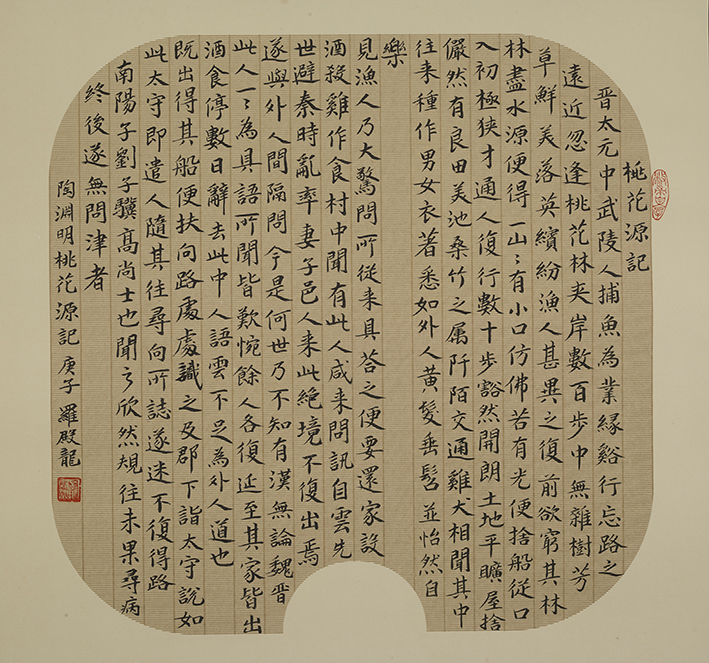 桃花源記
晋太元中武陵人捕魚為業緣谿行忘路之
遠近忽逢桃花林夹岸數百步中無雜樹芳
草鮮美落英繽紛漁人甚異之復前欲窮其林
林盡水源便得一山〻有小口仿佛若有光便捨船從口
入初極狹才通人復行數十步豁然開朗土地平曠屋捨
儼然有良田美池桑竹之属阡陌交通雞犬相聞其中
往来種作男女衣著悉如外人黄髮垂髫並怡然自
樂
見漁人乃大驚問所從来具荅之便要還家設
酒殺雞作食村中聞有此人咸来問訊自雲先
世避秦時亂率妻子邑人来此絕境不復出焉
遂與外人間隔問今是何世乃不知有漢無論魏晋
此人一〻為具語所聞皆歎惋餘人各復延至其家皆出
酒食停數日辭去此中人語雲不足為外人道也
既出得其船便扶向路處處識之及郡下詣太守說如
此太守即遣人隨其往尋向所誌遂迷不復得路
南陽子劉子驥高尚士也聞之欣然規往未果尋病
終後遂無問津者
陶淵明桃花源記 庚子 羅殿龍